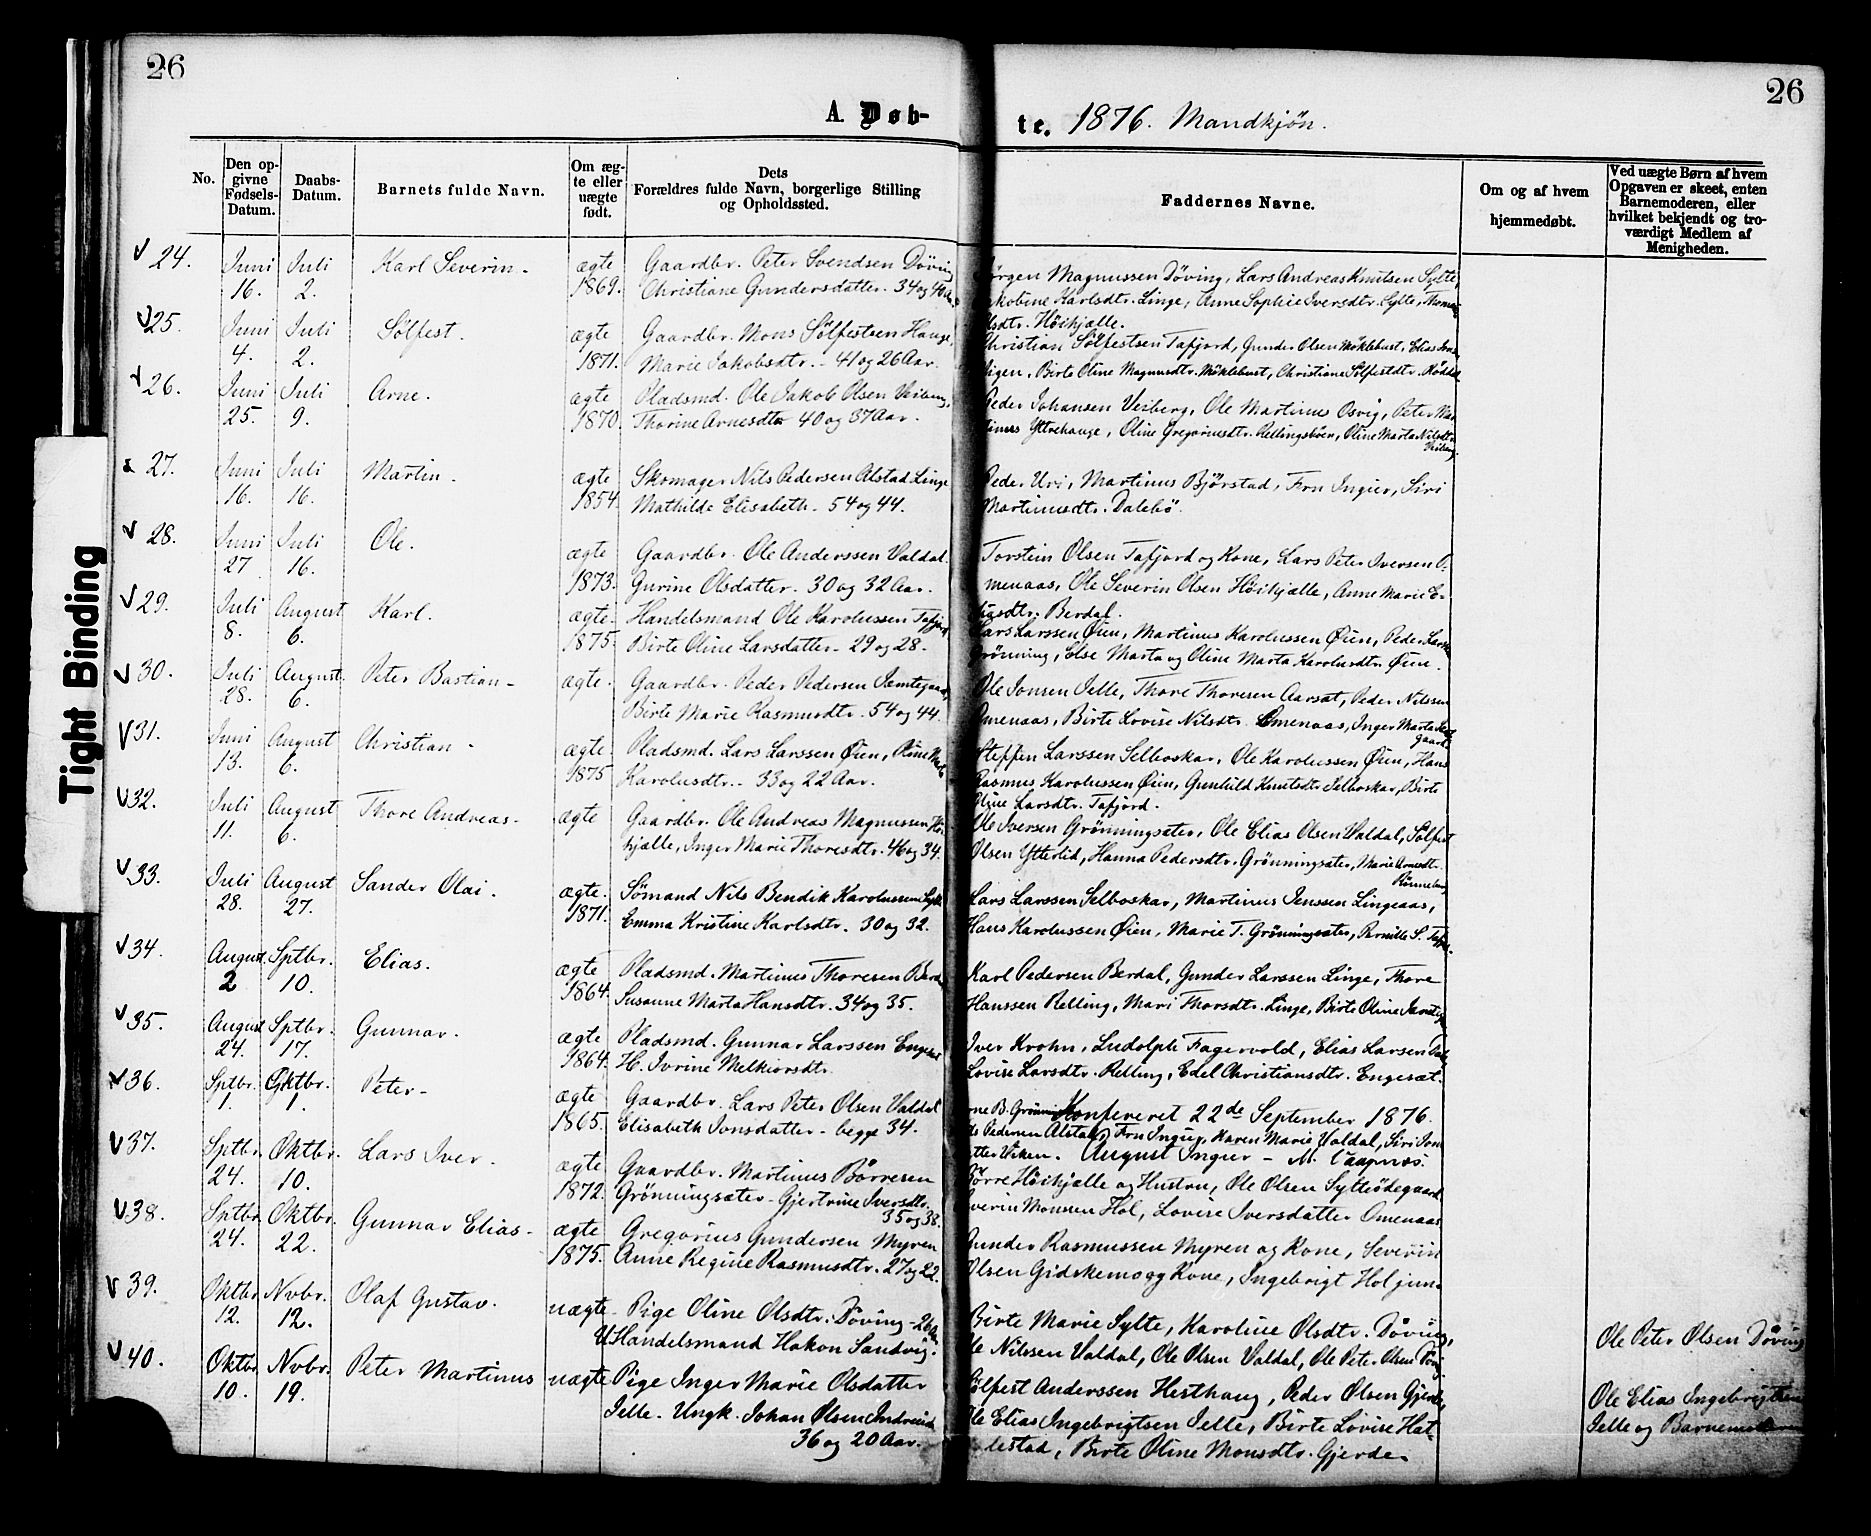 26
26
A. Døb-
te. 1876. Mandkjön.
No.
Den op-
givne
Fødsels-
Datum.
Daabs-
Datum.
Barnets fulde Navn.
Om æg-
te eller
uægte
født.
Dets
Forældres fulde Navn, borgerlige Stilling
og Opholdssted.
Faddernes Navne.
Om og af hvem
hjemmedøbt.
Ved uægte Børn af hvem
Opgaven er skeet, enten
Barnemoderen, eller
hvilket bekjendt og tro-
værdigt Medlem af
Menigheden.
Tight Binding
24. Juni 16. Juli 2. Karl Severin. ægte 1869.
Gaardbr. Peter Svendsen Döving
Christiane Gundersdatter. 34 og 40
Magnussen Döving, Lars Andreas Knutsen Sylte,
Karlsdtr. Linge, Anne Sophie Iversdtr. Sylte,
Höihjælle.
25. Juni 4. Juli 2. Sölfest. ægte 1871.
Gaardbr. Mons Sölfestsen Hauge,
Marie Jakobsdtr. - 41 og 26 Aar.
Christian Sölfestsen Tafjord, Gunder Olsen Möklebust, Elias
Birte Oline Magnusdtr. Möklebust, Christiane Sölfestdtr.
26. Juni 25. Juli 9. Arne. ægte 1870.
Pladsmd. Ole Jakob Olsen Veiberg,
Thorine Arnesdtr 40 og 37 Aar.
Peder Johansen Veiberg, Ole Martinus Osvig, Peter Mar
tinus Yttrehauge, Oline Gregoriusdtr. Rellingsböen, Oline Marta Nilsdtr.
Veiberg.
27. Juni 16. Juli 16. Martin. ægte 1854.
Skomager Nils Pedersen Alstad Linge
Mathilde Elisabeth. - 54 og 44.
Peder Uri, Martinus Björstad, Fru Ingier, Siri
Martinusdtr. Dalebö.
28. Juni 27 Juli 16. Ole. ægte 1873.
Gaardbr. Ole Anderssen Valdal.
Gurine Olsdatter. 30 og 32 Aar.
Torstein Olsen Tafjord og Kone, Lars Peter Iversen O-
menaas, Ole Severin Olsen Höihjælle, Anne Marie E-
liasdtr. Berdal.
29. Juli 8. August 6. Karl. ægte 1875.
Handelsmand Ole Karolussen Tafjord
Birte Oline Larsdatter - 29 og 28.
Lars Larssen Öien, Martinus Karolussen Öien, Peder
Grönning, Else Marta og Oline Marta Karolusdtr. Öien.
30. Juli 28. August 6. Peter Bastian - ægte.
Gaardbr. Peder Pedersen Jemtegaard,
Birte Marie Rasmusdtr. 54 og 44.
Ole Jonsen Selle, Thore Thoresen Aarsæt, Peder Nilssen
Omenaas, Birte Lovise Nilsdtr. Omenaas, Inger Marta
gaard.
31. Juni 13. August 6. Christian - ægte 1875
Pladsmd. Lars Larssen Öien, Oline Marta
Karolusdtr. - 33 og 22 Aar.
Steffen Larssen Selboskar, Ole Karolussen Öien, Hans
Rasmus Karolussen Öien, Gunhild Knutsdtr Selboskar, Birte
Oline Larsdtr. Tafjord.
32. Juli 11. August 6. Thore Andreas - ægte
Gaardbr. Ole Andreas Magnussen Höi
hjælle, Inger Marie Thoresdtr. 46 og 34.
Ole Iversen Grönningsæter, Ole Elias Olsen Valdal, Sölfest
Olsen Ytterlid, Hanna Pedersdtr. Grönningsæter, Marie Arnesdtr.
33. Juli 28. August 27. Sander Olai. ægte. 1871.
Sömand Nils Bendik Karolussen Sylte
Emma Kristine Karlsdtr. 30 og 32.
Lars Larssen Selboskar, Martinus Jenssen Lingeaas,
Hans Karolussen Öien, Marie T. Grönningsæter, Pernille S.
34. August 2 Sptbr. 10. Elias. ægte 1864.
Pladsmd. Martinus Thoresen Berdal
Susanne Marta Hansdtr. 34 og 35.
Karl Pedersen Berdal, Gunder Larssen Linge, Thore
Hanssen Relling, Mari Thorsdtr. Linge, Birte Oline
35. August 24. Sptbr. 17. Gunnar. ægte 1864.
Pladsmd. Gunnar Larssen Engeset
H. Ivrine Melkiorsdtr.
Iver Krohn, Ludolph Fagervold, Elias Larsen
Lovise Larsdtr. Relling, Edel Christiansdtr. Engeset.
36. Sptbr. 1. Oktbr. 1. Peter - ægte 1865.
Gaardbr. Lars Peter Olsen Valdal
Elisabeth Jonsdatter - begge 34.
Konfereret 22de September 1876.
Pedersen Alstad, Fru Ingier, Karen Marie Valdal, Siri
Viken. August Ingier -
37. Sptbr. 24. Oktbr. 10. Lars Iver. ægte 1872.
Gaardbr. Martinus Börresen
Grönningsæter - Gjertrine Iversdtr.
35 og 38.
Börre Höihjælle og Hustru, Ole Olsen Sylteödegaard
Severin Monsen Hol, Lovise Iversdatter Omenaas
38. Sptbr. 24. Oktbr. 22. Gunnar Elias - ægte 1875.
Gregorius Gundersen Myren
Anne Regine Rasmusdtr. 27 og 22.
Gunder Rasmussen Myren og Kone, Severin
Olsen Gidskemo og Kone, Ingebrigt
39. Oktbr. 12. Nvbr. 12. Olaf Gustav. uægte -
Pige Oline Olsdtr. Döving - 26 Aar
U. Handelsmand Hakon Sandvig.
Birte Marie Sylte, Karoline Olsdtr. Döving,
Ole Nilssen Valdal, Ole Olsen Valdal, Ole Peter Olsen Döving
Ole Peter Olsen Döving
40. Oktbr. 10. Nvbr. 19. Peter Martinus uægte
Pige Inger Marie Olsdatter
Selle. Ungk. Johan Olsen Indreeide
36 og 20 Aar.
Sölfest Anderssen Hesthaug, Peder Olsen Gjerde
Ole Elias Ingebrigtsen Selle, Birte Lovise Hat-
lestad, Birte Oline Monsdtr. Gjerde.
Ole Elias Ingebrigtsen
Selle og Barnemoderen